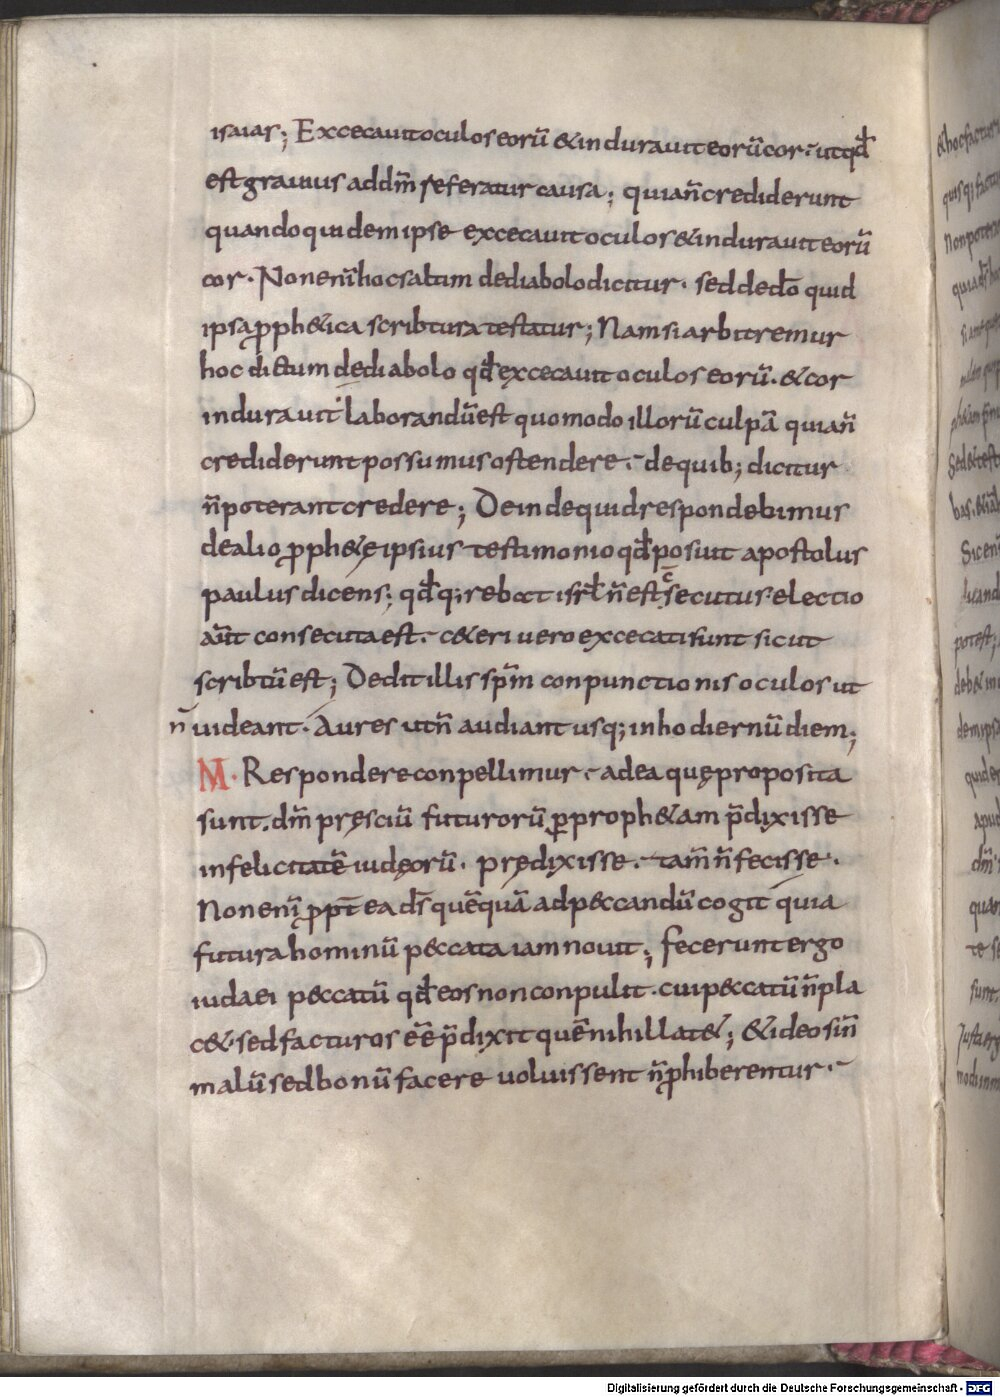 isaias; Excecauit oculos eorū & indurauit eorū cor· ut qđ
est grauius ad dm̄ referatur causa; quia n̄ crediderunt
quando quidem ipse excecauit oculos & indurauit eorū
cor· Non enī hoc saltim de diabolo dicitur· sed de dō quid
ipsa ꝓph&ica scribtura testatur; Nam si arbitremur
hoc dictum de diabolo qđ excecauit oculos eorū· & cor
indurauit laborandū est quomodo illorū culpā quia n̄
crediderunt possumus ostendere· de quib; dicitur
n̄ poterant credere; Deinde quid respondebimus
de alio ꝓph&ę ipsius testimonio qđ posuit apostolus
paulus dicens; qđ q;rebat isrł n̄ est secutus electio
aūt consecuta est· c&eri uero excecati sunt sicut
scribtū est; Dedit illis sp̄m conpunctionis oculos ut
n̄ uideant· Aures ut n̄ audiant usq; in hodiernū diem;
M· Respondere conpellimur· ad ea quę proposita
sunt· dm̄ pręsciū futurorū ꝑ proph&am p̄dixisse
infelicitatē iudęorū· prędixisse· tam̄ n̄ fecisse·
Non enī ꝓpt̄ ea ds̄ quēquā ad peccandū cogit quia
futura hominū peccata iam nouit; fecerunt ergo
iudaei peccatū qđ eos non conpulit· cui peccatū n̄ pla
c&· sed facturos eē̄ p̄dixit quē nihil lat&; & ideo si n̄
malū sed bonū facere uoluissent n̄ ꝓhiberentur·
Digitalisierung gefördert durch die Deutsche Forschungsgemeinschaft - DFG